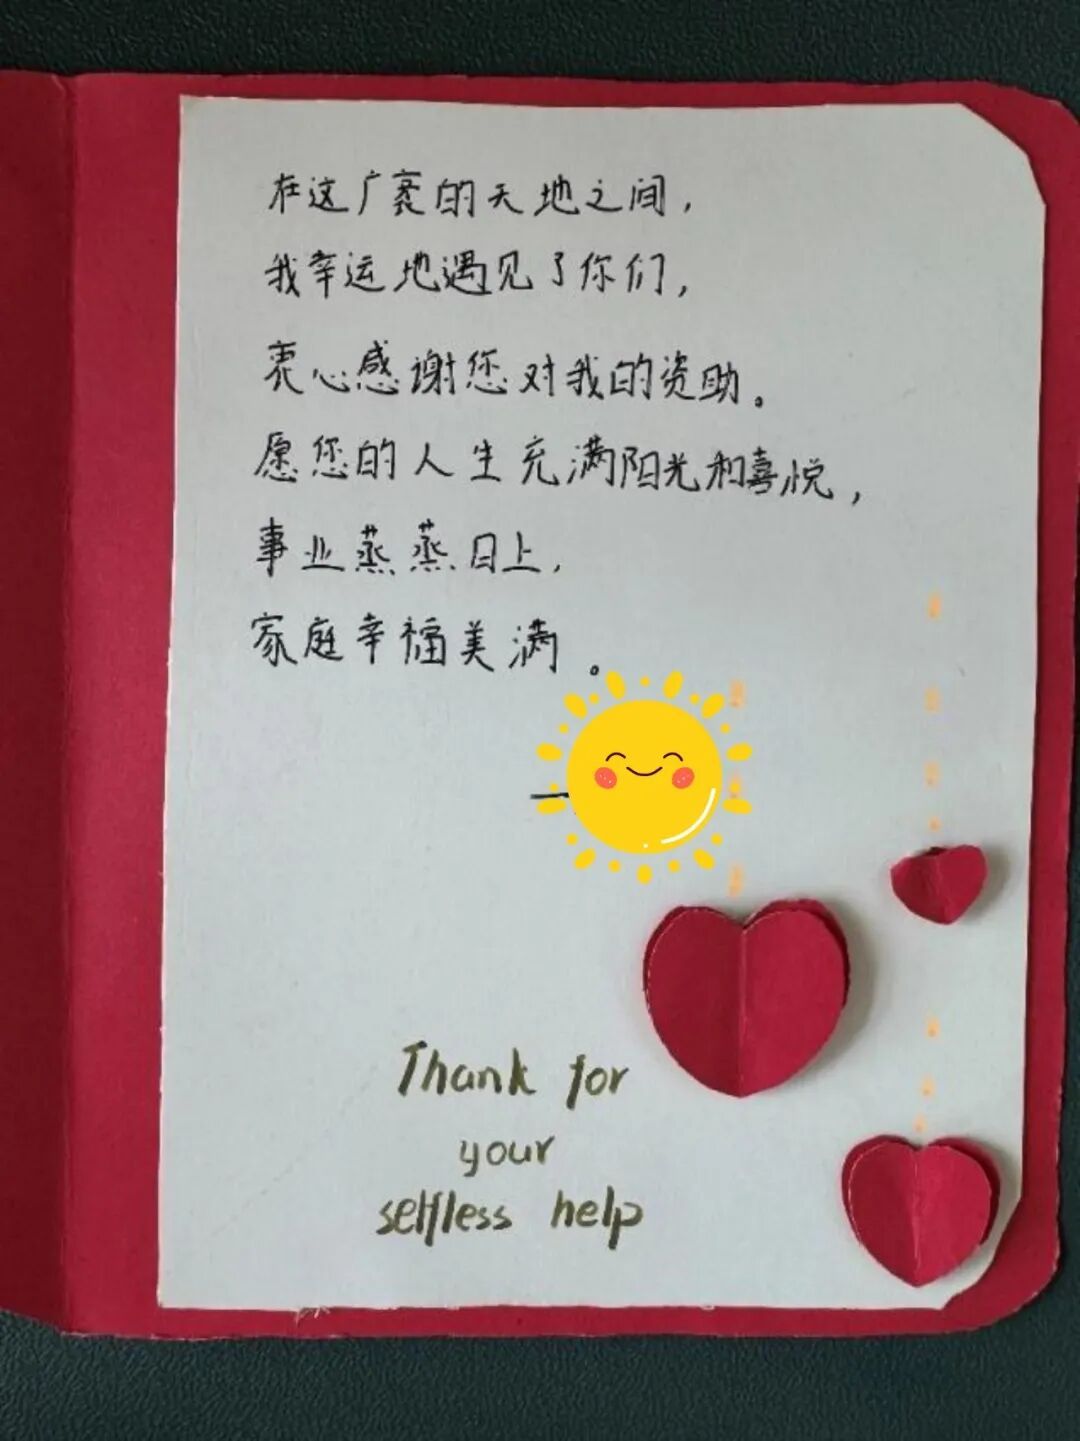 在这广袤的天地之间，
我幸运地遇见了你们，
衷心感谢您对我的资助。
愿您的人生充满阳光和喜悦，
事业蒸蒸日上，
家庭幸福美满。
Thank for
your
selfless help